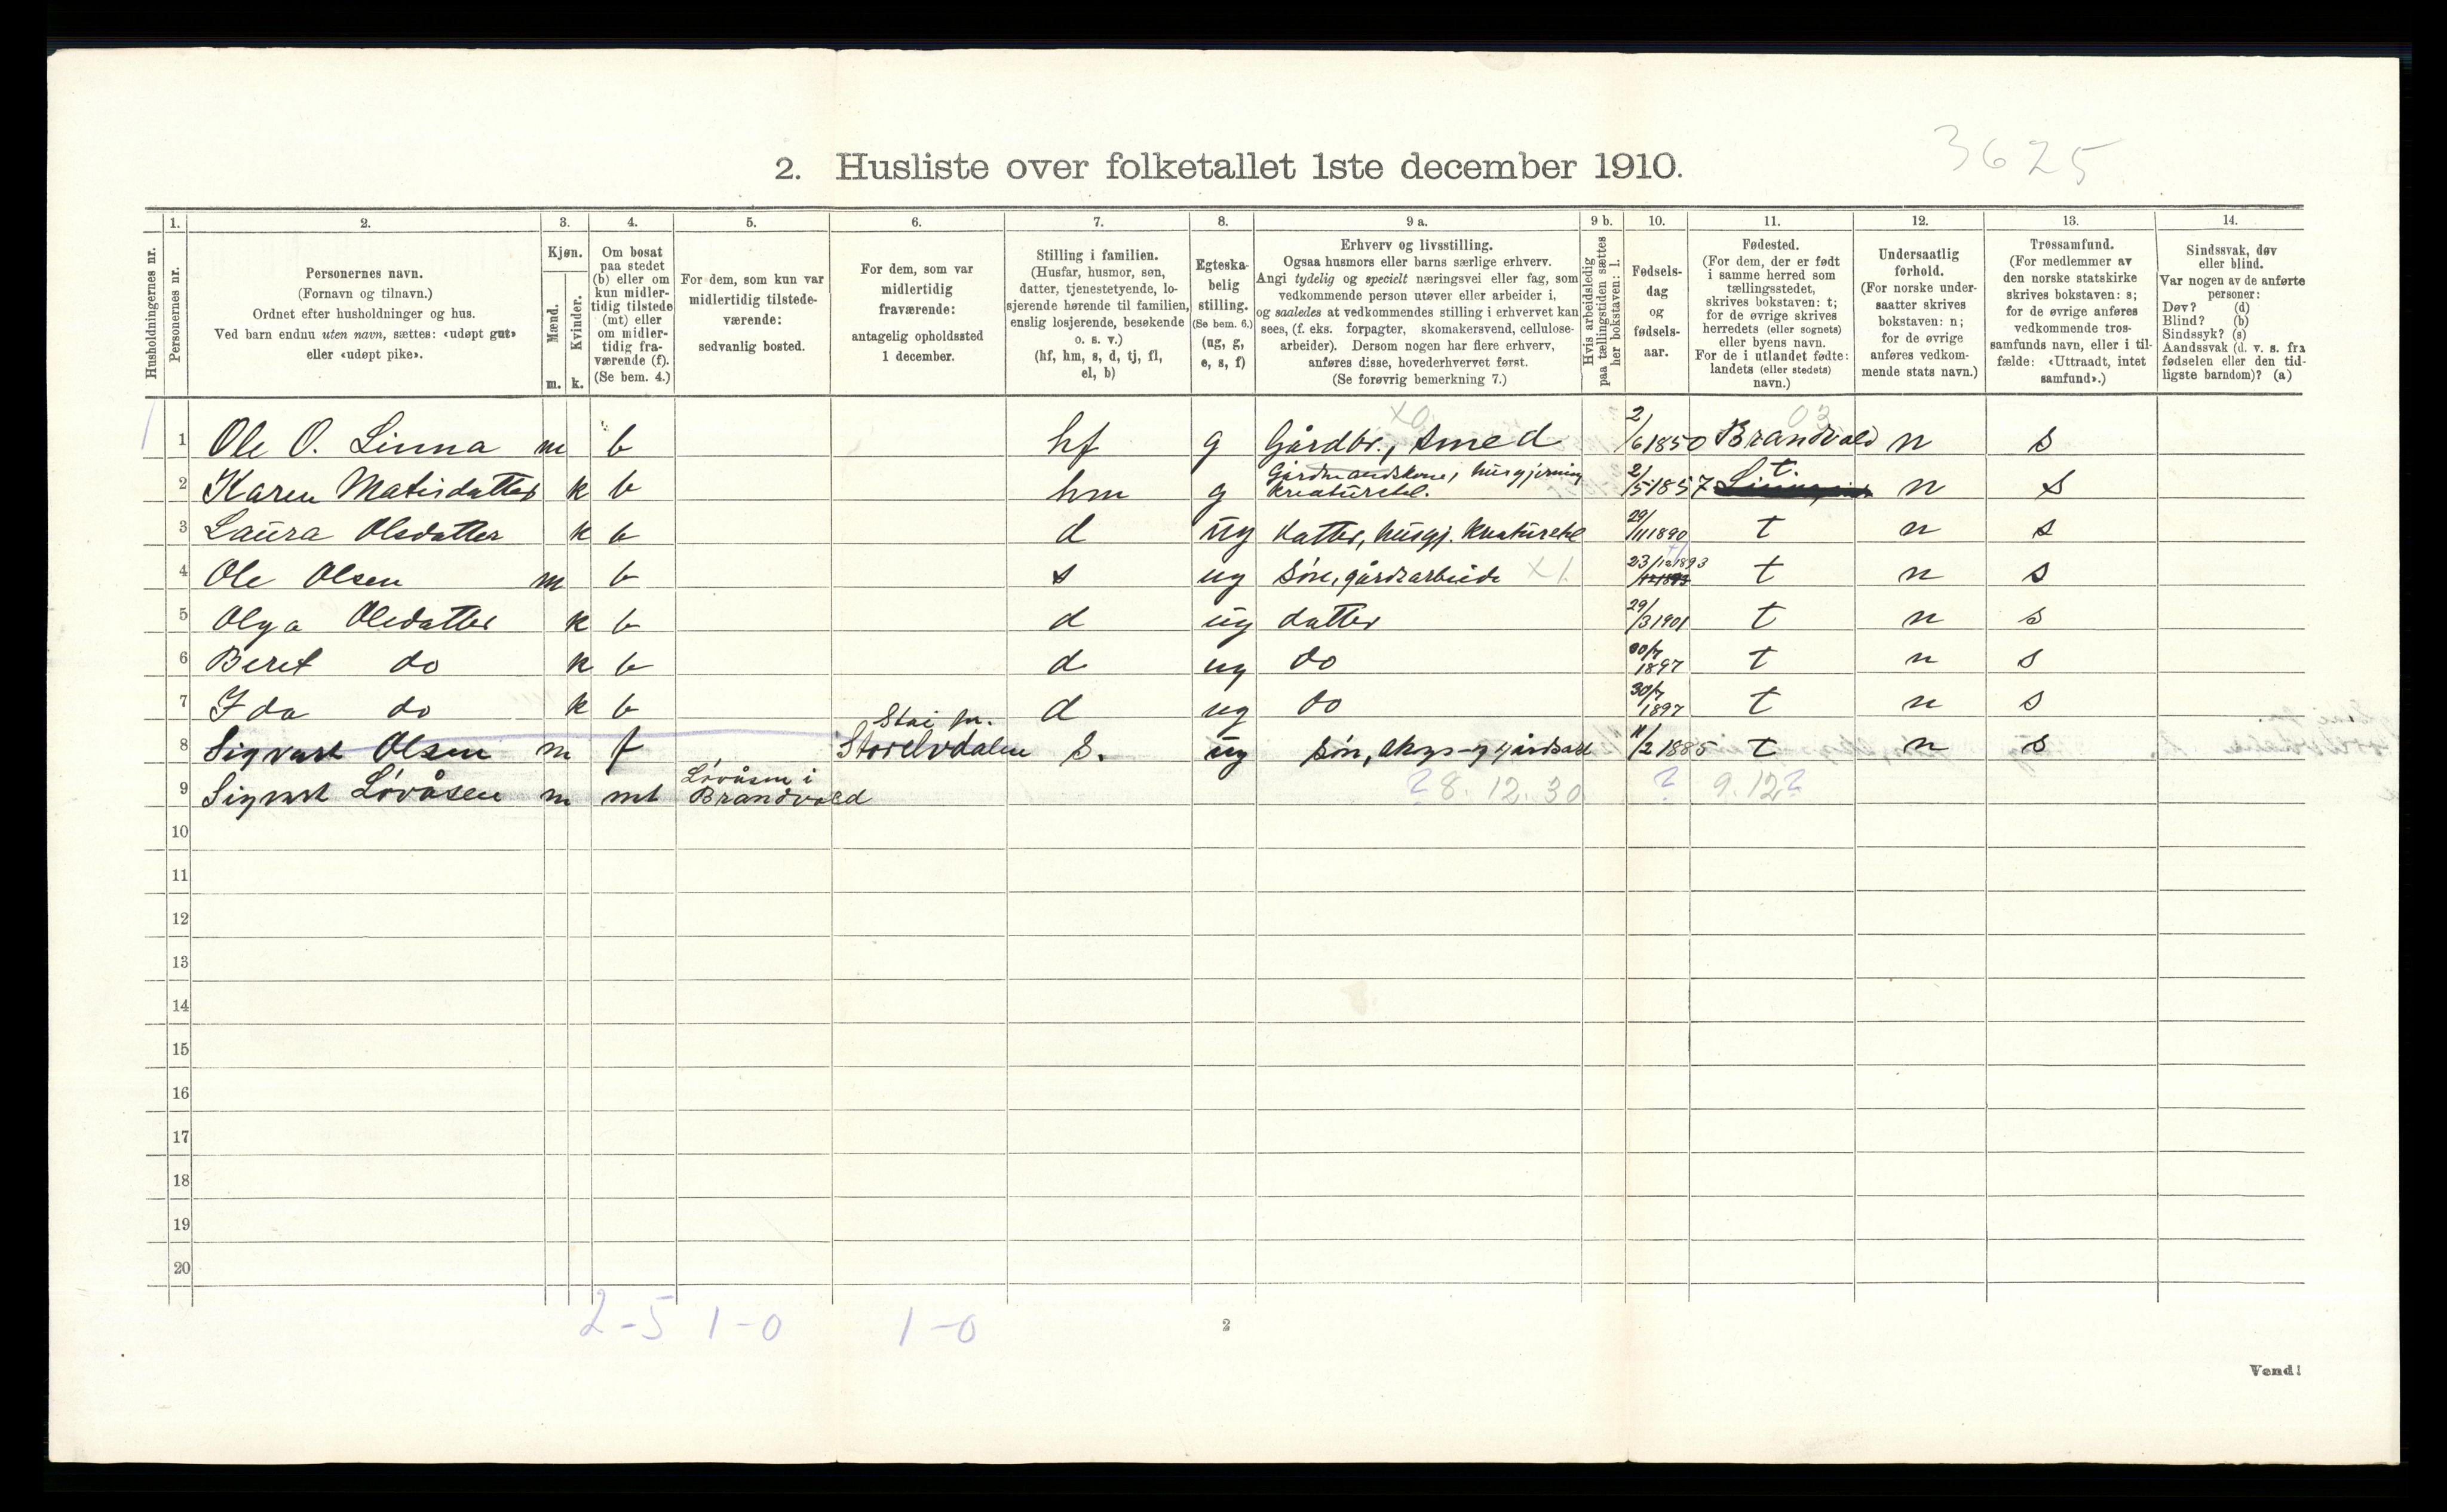 3625
2. Husliste over folketallet 1ste december 1910.
Husholdningernes nr.
1.
Personernes nr.
2.
Personernes navn.
(Fornavn og tilnavn.)
Ordnet efter husholdninger og hus.
Ved barn endnu uten navn, sættes: «udøpt gut»
eller «udøpt pike».
3.
Kjøn.
Mænd.
Kvinder.
m. k.
4.
Om bosat
paa stedet
(b) eller om
kun midler-
tidig tilstede
(mt) eller
om midler-
tidig fra-
værende (f).
(Se bem. 4.)
5.
For dem, som kun var
midlertidig tilstede-
værende:
sedvanlig bosted.
6.
For dem, som var
midlertidig
fraværende:
antagelig opholdssted
1 december.
7.
Stilling i familien.
(Husfar, husmor, søn,
datter, tjenestetyende, lo-
sjerende hørende til familien,
enslig losjerende, besøkende
o. s. v.)
(hf, hm, s, d, tj, fl,
el, b)
8.
Egteska-
belig
stilling.
(Se bem. 6.)
(ug, g,
e, s, f)
9 a.
Erhverv og livsstilling.
Ogsaa husmors eller barns særlige erhverv.
Angi tydelig og specielt næringsvei eller fag, som
vedkommende person utøver eller arbeider i,
og saaledes at vedkommendes stilling i erhvervet kan
sees, (f. eks. forpagter, skomakersvend, cellulose-
arbeider). Dersom nogen har flere erhverv,
anføres disse, hovederhvervet først.
(Se forøvrig bemerkning 7.)
9 b.
Hvis arbeidsledig
paa tællingstiden sættes
her bokstaven: l.
10.
Fødsels-
dag
og
fødsels-
aar.
11.
Fødested.
(For dem, der er født
i samme herred som
tællingsstedet,
skrives bokstaven: t;
for de øvrige skrives
herredets (eller sognets)
eller byens navn.
For de i utlandet fødte:
landets (eller stedets)
navn.)
12.
Undersaatlig
forhold.
(For norske under-
saatter skrives
bokstaven: n;
for de øvrige
anføres vedkom-
mende stats navn.)
13.
Trossamfund.
(For medlemmer av
den norske statskirke
skrives bokstaven: s;
for de øvrige anføres
vedkommende tros-
samfunds navn, eller i til-
fælde: «Uttraadt, intet
samfund».)
14.
Sindssvak, døv
eller blind.
Var nogen av de anførte
personer:
Døv? (d)
Blind? (b)
Sindssyk? (s)
Aandssvak (d. v. s. fra
fødselen eller den tid-
ligste barndom)? (a)
x0 03
1 1 Ole O. Linna m b hf g Gårdbr., smed 2/6 1850 Brandvald n s
2 Karen Matisdatter k b hm g Gårdmandskone, husgjerning kreaturstel. 2/5 1857 t. n s
3 Laura Olsdatter k b d ug datter, husgj. kreaturstel 29/11 1890 t n s
4 Ole Olsen m b s ug søn, gårdsarbeide x1 23/12 1893 t n s
5 Olga Olsdatter k b d ug datter 29/3 1901 t n s
6 Beret do k b d ug do 30/7 1897 t n s
7 Ida do k b d ug do 30/7 1897 t n s
8 Sigvart Olsen m f Stai pr. Storelvdalen s. ug søn, skogs- og gårdsarb 11/2 1885 t n s
9 Sigvart Løvåsen m mt Løvåsen i Brandvold ? 8.12.30 ? 9.12?
10
11
12
13
14
15
16
17
18
19
20
2-5 1-0 1-0
2
Vend!